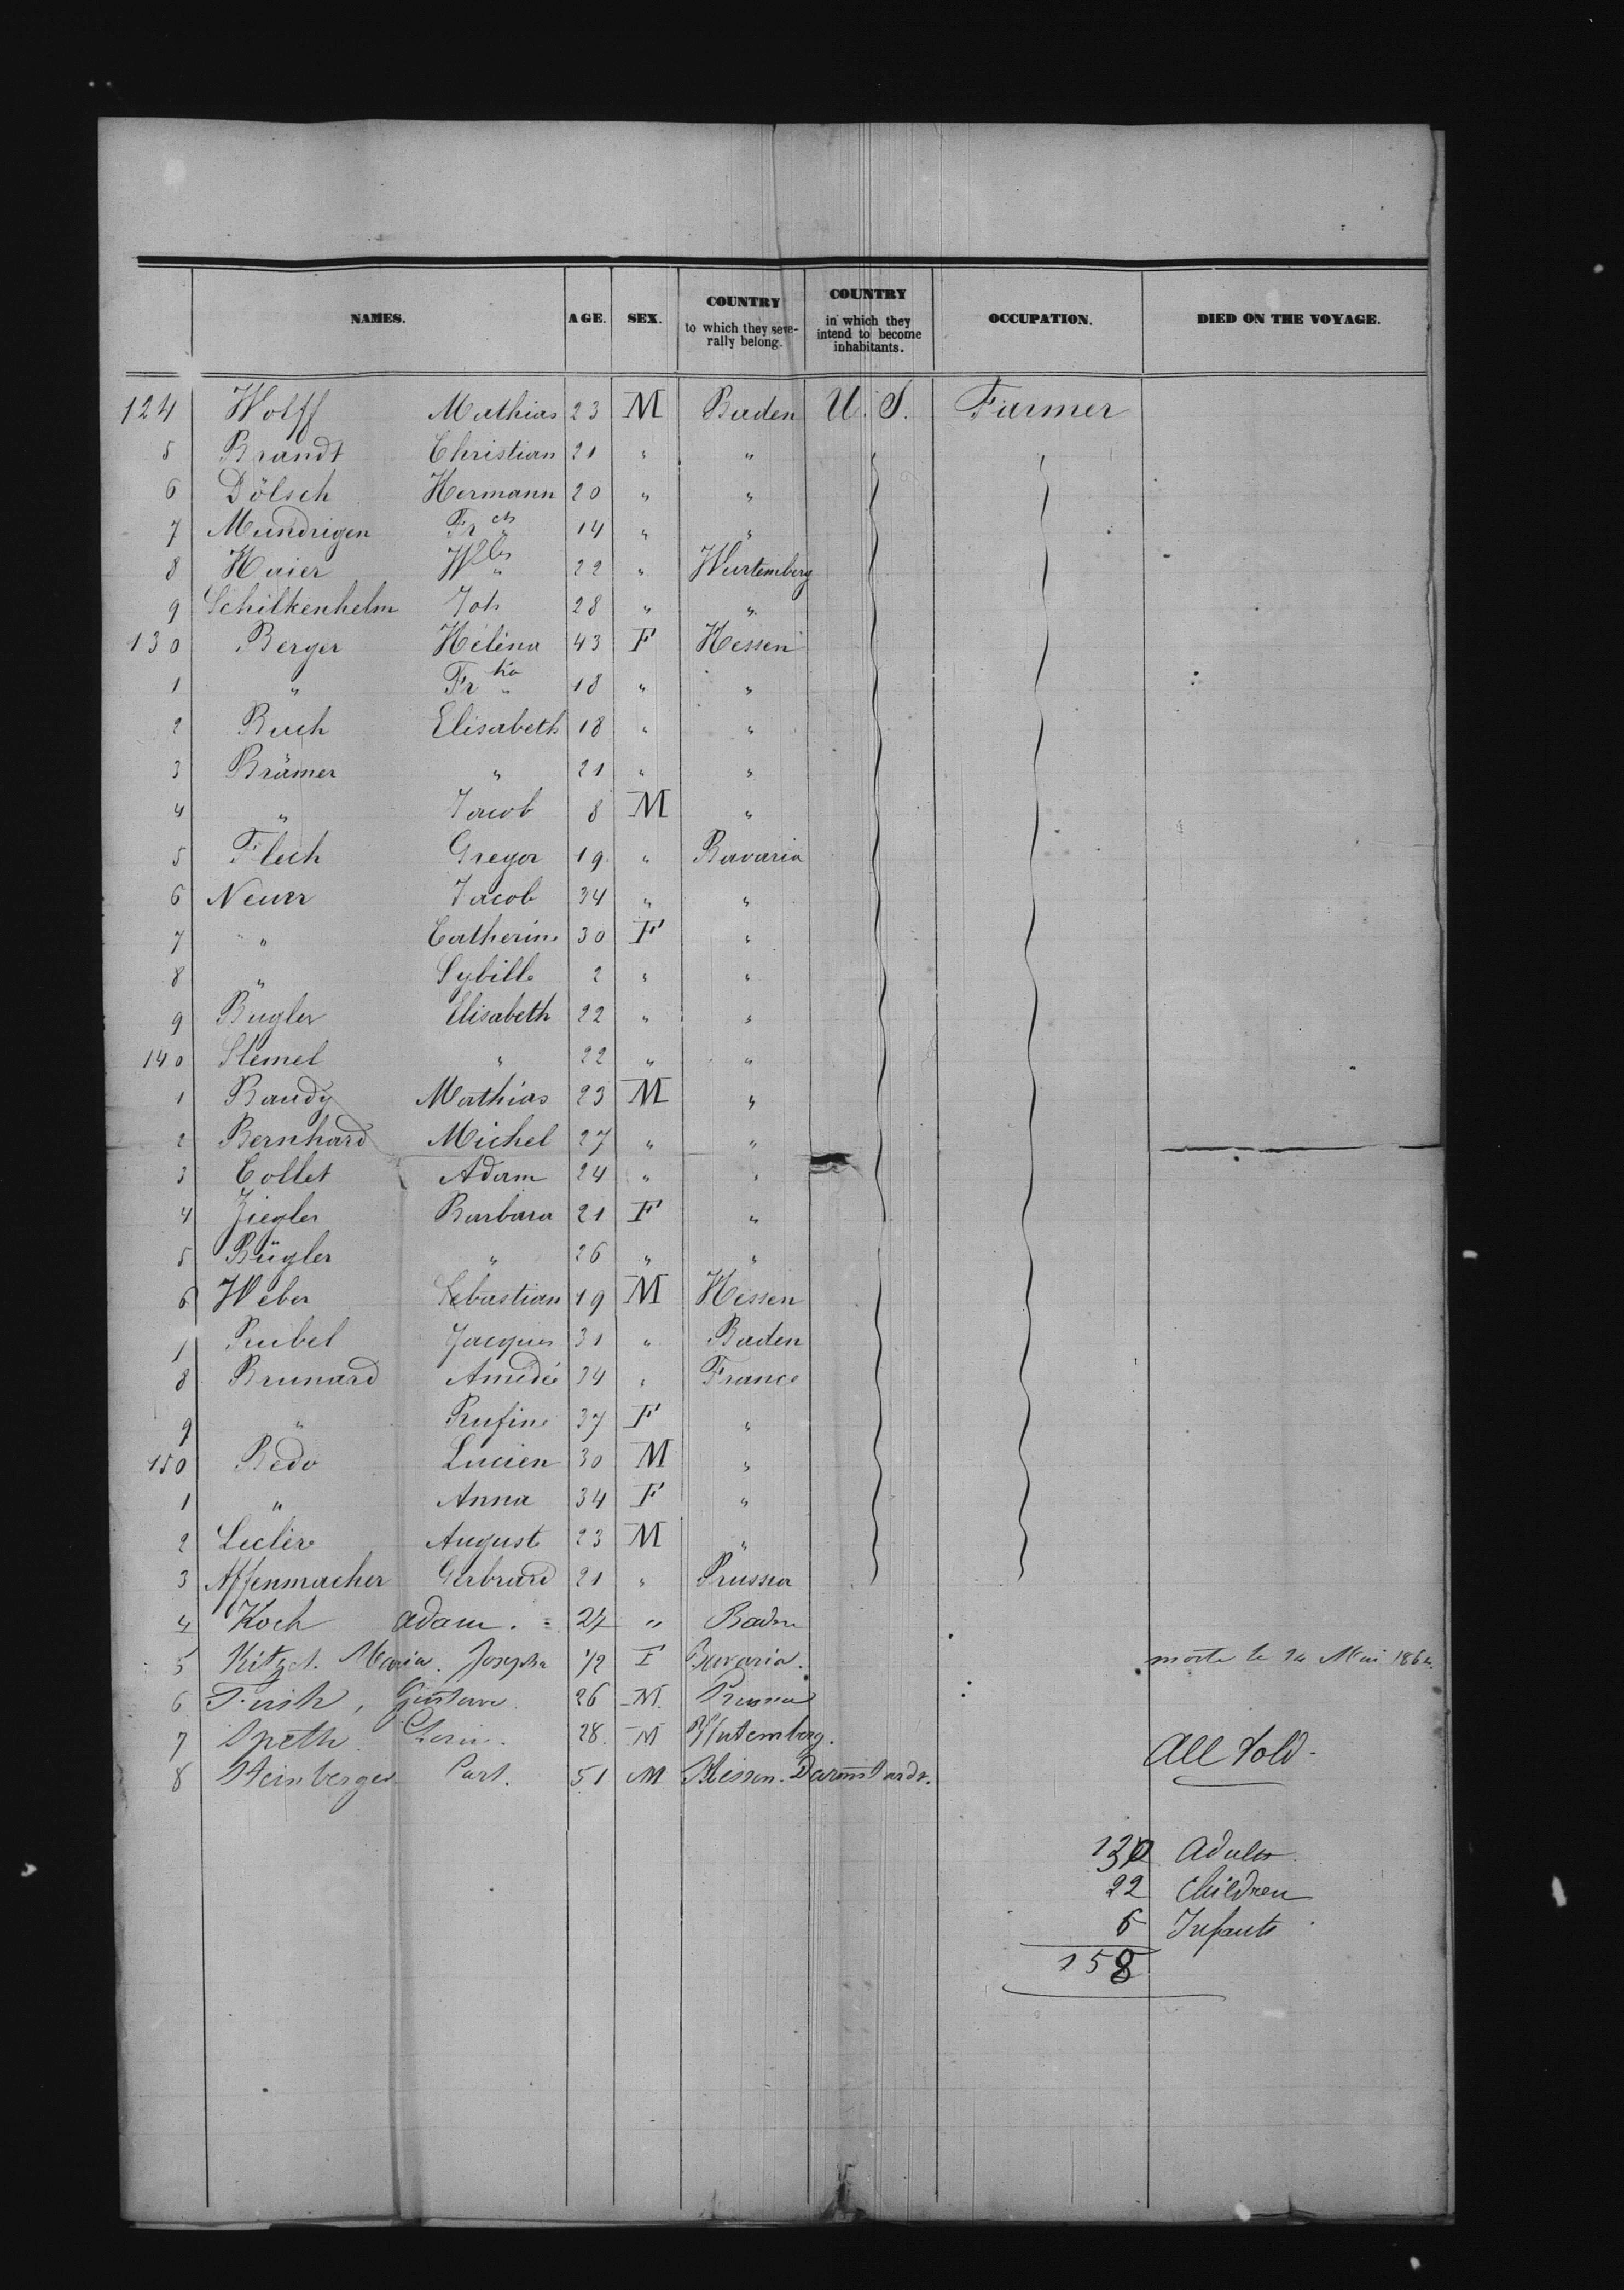 NAMES. AGE. SEX. COUNTRY to which they severally belong. COUNTRY in which they intend to become inhabitants. OCCUPATION. DIED ON THE VOYAGE.
124 Wolff Mathias 23 M Baden U. S. Farmer
5 Brandt Christian 21 " "
6 Dölsch Hermann 20 " "
7 Mundrigen Frch 14 " "
8 Haier 22 " Wurtemberg
9 Schilkenhelm Joh 28 " "
130 Berger Hélèna 43 F Hessen
1 " Frka 18 " "
2 Buch Elisabeth 18 " "
3 Brämer " 21 " "
4 " Jacob 8 M "
5 Flech Gregor 19 " Bavaria
6 Neurr Jacob 34 " "
7 " Catherine 30 F "
8 " Sybille 2 " "
9 Bugler Elisabeth 22 " "
140 Stemel " 22 " "
1 Baudy Mathias 23 M "
2 Bernhard Michel 27 " "
3 Collet Adam 24 " "
4 Ziegler Barbara 21 F "
5 Bügler " 26 " "
6 Weber Sebastian 19 M Hessen
7 Rubel Jacques 31 " Baden
8 Brunard Amédée 34 " France
9 " Rufine 37 F "
150 Bedo Lucien 30 M "
1 " Anna 34 F "
2 Leclère Auguste 23 M "
3 Affenmacher Gerbrard 21 " Prussia
4 Koch adam. = 24 " Baden
5 Maria Josepha 1/2 F Bavaria. morte le 24 Mai 186
6 Gustave 26 M. Prussia
7 Speth 28. M Wutemberg.
All told.
8 Steinberger Carl. 51 M Hessen-Darmstardt.
130 Adults
22 Children
6 Infants
158